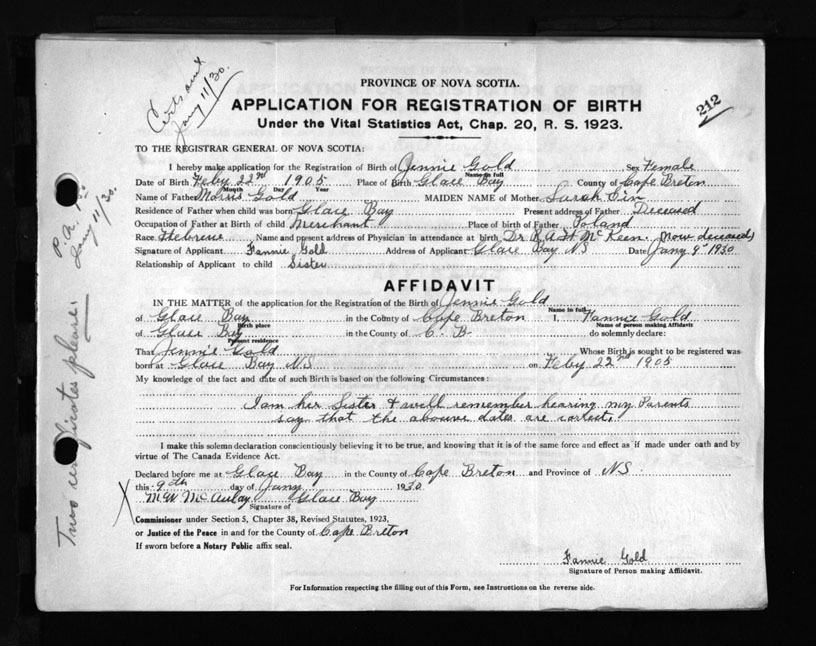 Cert sent
Jany 11/30.
PROVINCE OF NOVA SCOTIA.
212
APPLICATION FOR REGISTRATION OF BIRTH
Under the Vital Statistics Act, Chap. 20, R. S. 1923.
TO THE REGISTRAR GENERAL OF NOVA SCOTIA:
I hereby make application for the Registration of Birth of Jennie Gold Sex Female
Name in full
Date of Birth Feby 22nd 1905 Place of Birth Glace Bay County of Cape Breton
Month Day Year
Name of Father Morris Gold MAIDEN NAME of Mother Sarah
Residence of Father when child was born Glace Bay Present address of Father Deceased
Occupation of Father at Birth of child Merchant Place of birth of Father Poland
Race Hebrew Name and present address of Physician in attendance at birth Dr McKeen (now deceased)
Signature of Applicant Fannie Gold Address of Applicant Glace Bay NS Date Jany 9th 1930
Relationship of Applicant to child Sister
AFFIDAVIT
IN THE MATTER of the application for the Registration of the Birth of Jennie Gold
Name in full
of Glace Bay in the County of Cape Breton I, Fannie Gold
Birth place Name of person making Affidavit
of Glace Bay in the County of C. B. do solemnly declare:
Present residence
That Jennie Gold Whose Birth is sought to be registered was
born at Glace Bay NS on Feby 22nd 1905
My knowledge of the fact and date of such Birth is based on the following Circumstances:
I am her Sister & well remember hearing my Parents
say that the abouve dates are correct.
I make this solemn declaration conscientiously believing it to be true, and knowing that it is of the same force and effect as if made under oath and by
virtue of The Canada Evidence Act.
Declared before me at Glace Bay in the County of Cape Breton and Province of NS
this 9th day of Jany 1930
X
McAulay Glace Bay
Signature of
Commissioner under Section 5, Chapter 38, Revised Statutes, 1923,
or Justice of the Peace in and for the County of Cape Breton
If sworn before a Notary Public affix seal.
Fannie Gold
Signature of Person making Affidavit.
For Information respecting the filling out of this Form, see Instructions on the reverse side.
Two certificates please.
P.A.
Jany 11/30.